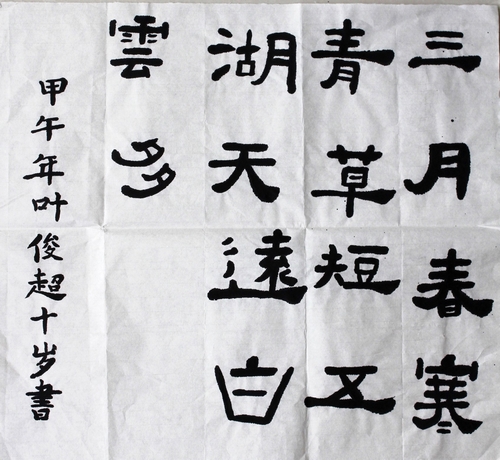 三月春寒
青草短五
湖天遠白
雲多
甲午年叶俊超十岁書